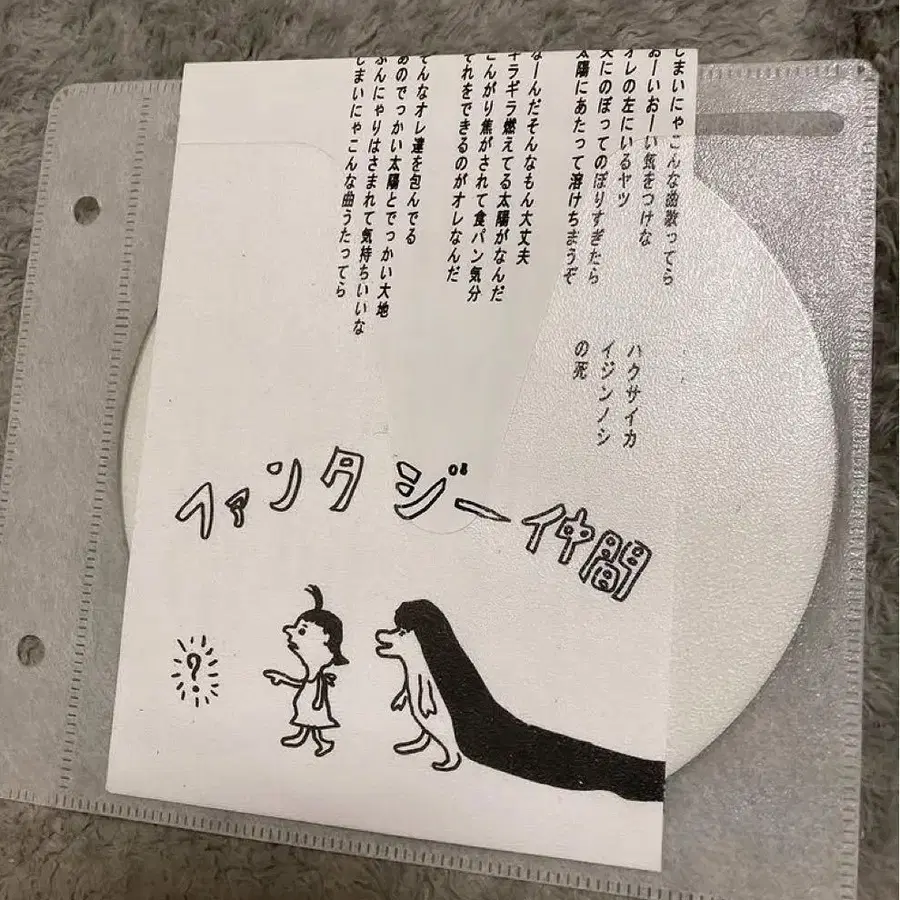 しまいにゃこんな曲歌ってら
おーいおーい気をつけな
オレの左にいるヤツ
天にのぼってのぼりすぎたら
太陽にあたって溶けちまうぞ
なーんだそんなもん大丈夫
ギラギラ燃えてる太陽がなんだ
こんがり焦がされて食パン気分
それをできるのがオレなんだ
そんなオレ達を包んでる
あのでっかい太陽とでっかい大地
ぷんにゃりはさまれて気持ちいいな
しまいにゃこんな曲うたってら
ハクサイカ
イジンノシ
の死
ファンタジー仲間
?